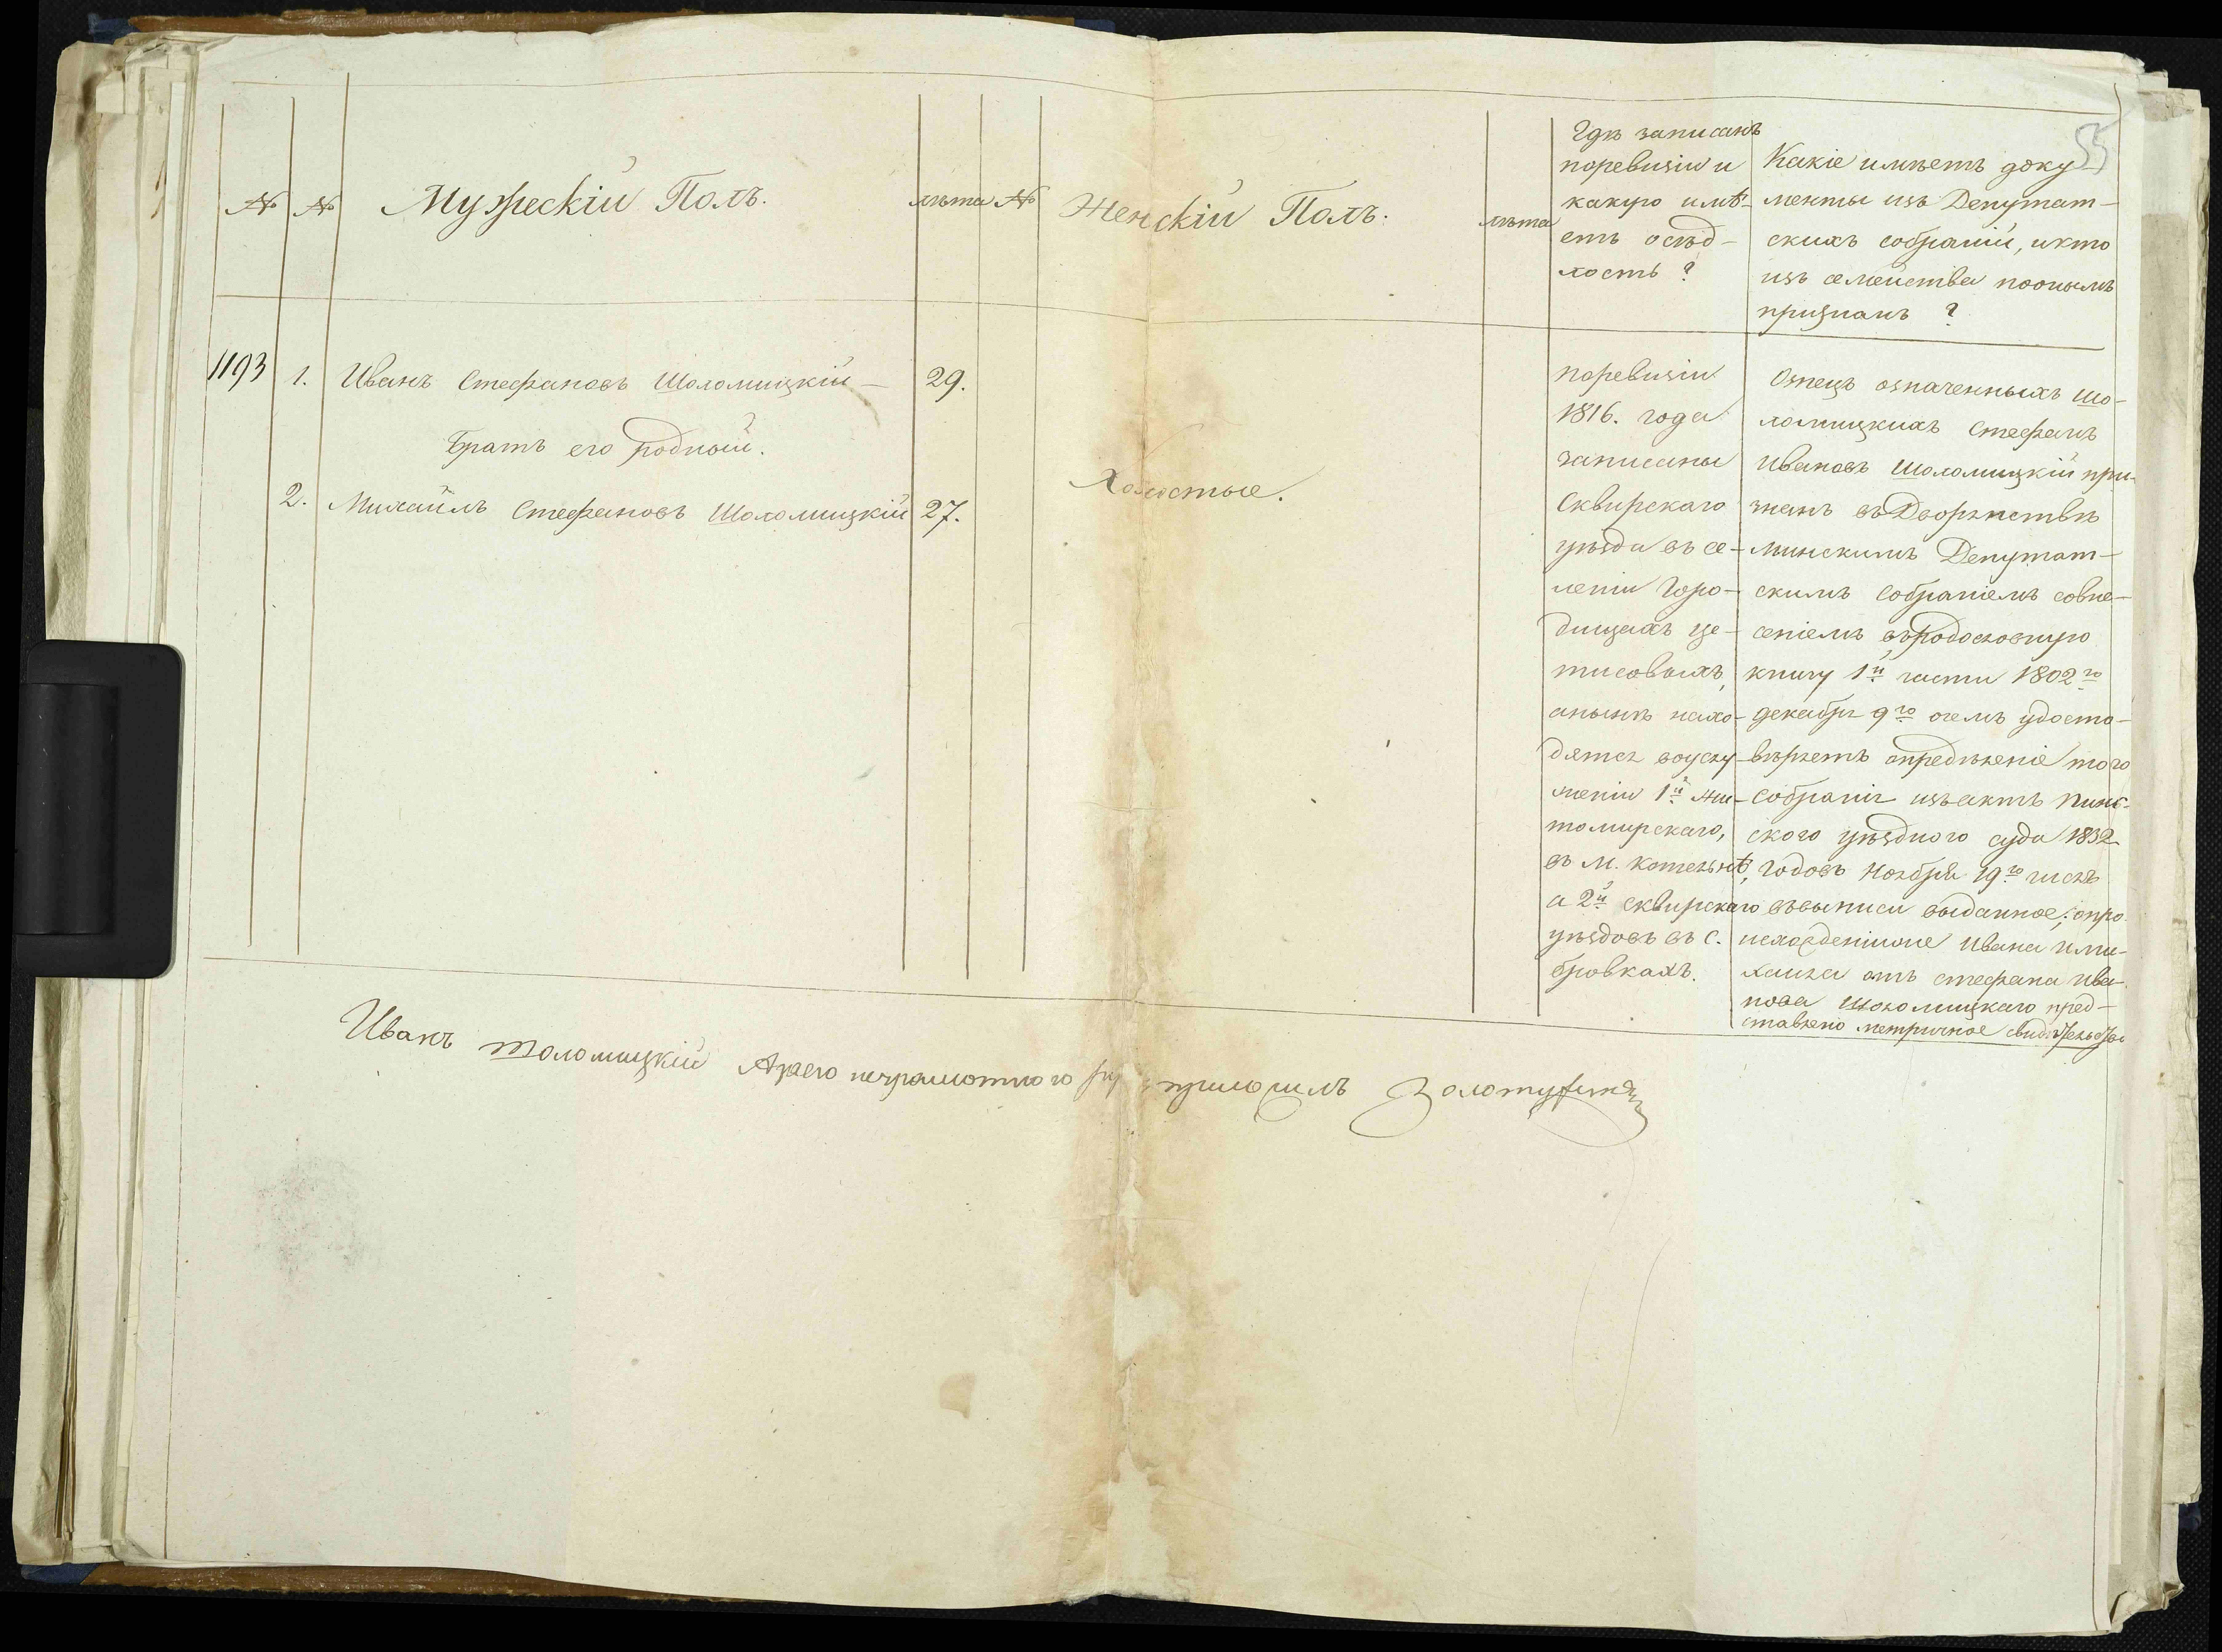 55
№ № Мужескій Полъ. лѣта № Женскій Полъ. лѣта
Гдѣ записанъ
поревизіи и
какую имѣ-
етъ осѣд-
лость?
Какіе имѣетъ доку-
менты изъ Депутат-
скихъ собраній, икто
изъ семейства поонымъ
признанъ?
1193 1. Иванъ Стефановъ Шоломицкій — 29.
Братъ его родный.
2. Михаилъ Стефановъ Шоломицкій 27.
Холостые.
поревизіи
1816. года
записаны
Сквирскаго
уѣзда въ се-
леніи Горо-
дищахъ це-
тисовыхъ,
анынѣ нахо-
дятся воуслу-
женіи 1й жи-
томирскаго,
въ м. Котельнѣ,
а 2й сквирскаго
уѣздовъ въ с.
бровкахъ.
Отецъ означенныхъ Шо-
ломицкихъ Стефанъ
Ивановъ Шоломицкій при-
знанъ въДворянствѣ
минскимъ Депутат-
скимъ Собраніемъ совне-
сеніемъ въродословную
книгу 1й части 1802го
декабря 9го очемъ удосто-
вѣряетъ опредѣленіе того
Собранія изъактъ Пинс-
ского уѣзднаго суда 1832.
годовъ Ноября 19го числъ
въвыписи выданное; опро
исхожденіиже Ивана иМи-
хаила отъ стефана Ива-
нова Шоломицкаго пред-
ставлено метричное свидѣтельство
Иванъ Шоломицкій Азаего неграмотного приложилъ Золотухинъ